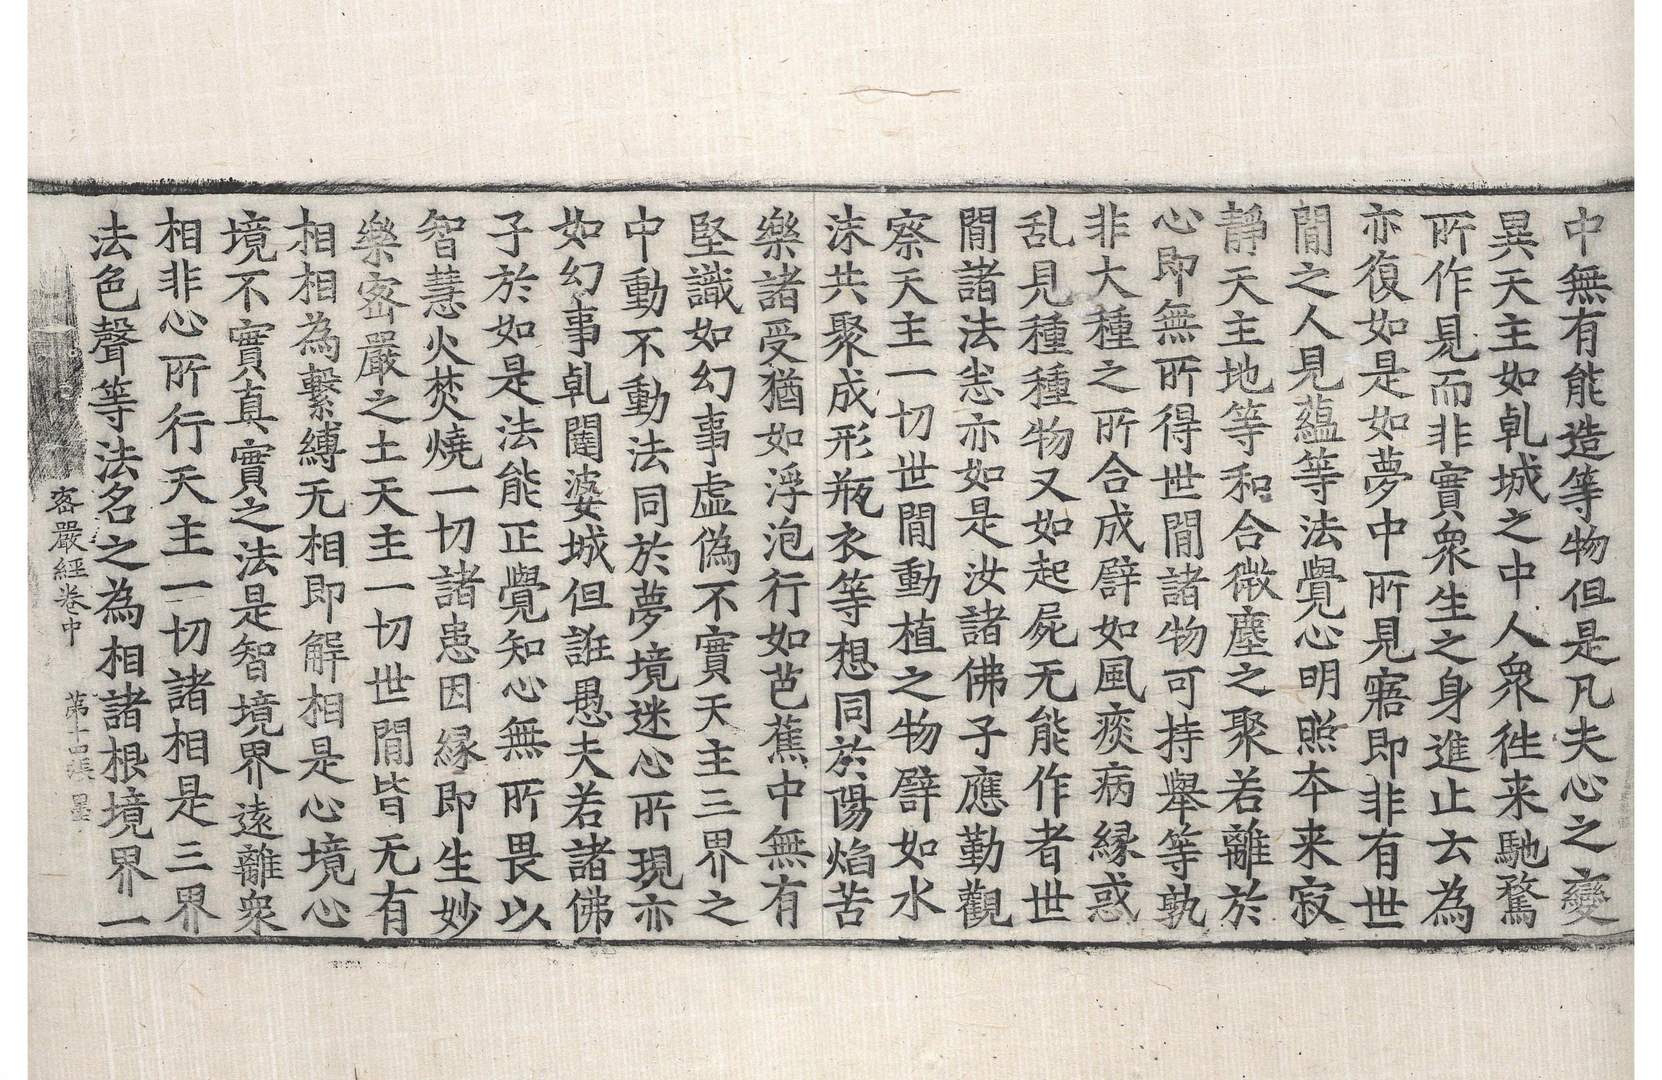 中無有能造等物但是凡夫心之變
異天主如乹城之中人衆徃来馳騖
所作見而非實衆生之身進止去為
亦復如是如夢中所見寤即非有世
間之人見蘊等法覺心明照本来寂
靜天主地等和合微塵之聚若離於
心即無所得世間諸物可持舉等孰
非大種之所合成譬如風痰病緣惑
乱見種種物又如起屍无能作者世
間諸法悉亦如是汝諸佛子應勤觀
察天主一切世間動植之物譬如水
沫共聚成形瓶衣等想同於陽焰苦
樂諸受猶如浮泡行如芭蕉中無有
堅識如幻事虛偽不實天主三界之
中動不動法同於夢境迷心所現亦
如幻事乹闥婆城但誑愚夫若諸佛
子於如是法能正覺知心無所畏以
智慧火焚燒一切諸患因緣即生妙
樂密嚴之土天主一切世間皆无有
相相為繫縛无相即解相是心境心
境不實真實之法是智境界遠離衆
相非心所行天主一切諸相是三界
法色聲等法名之為相諸根境界一
密嚴經卷中 第十四張 墨